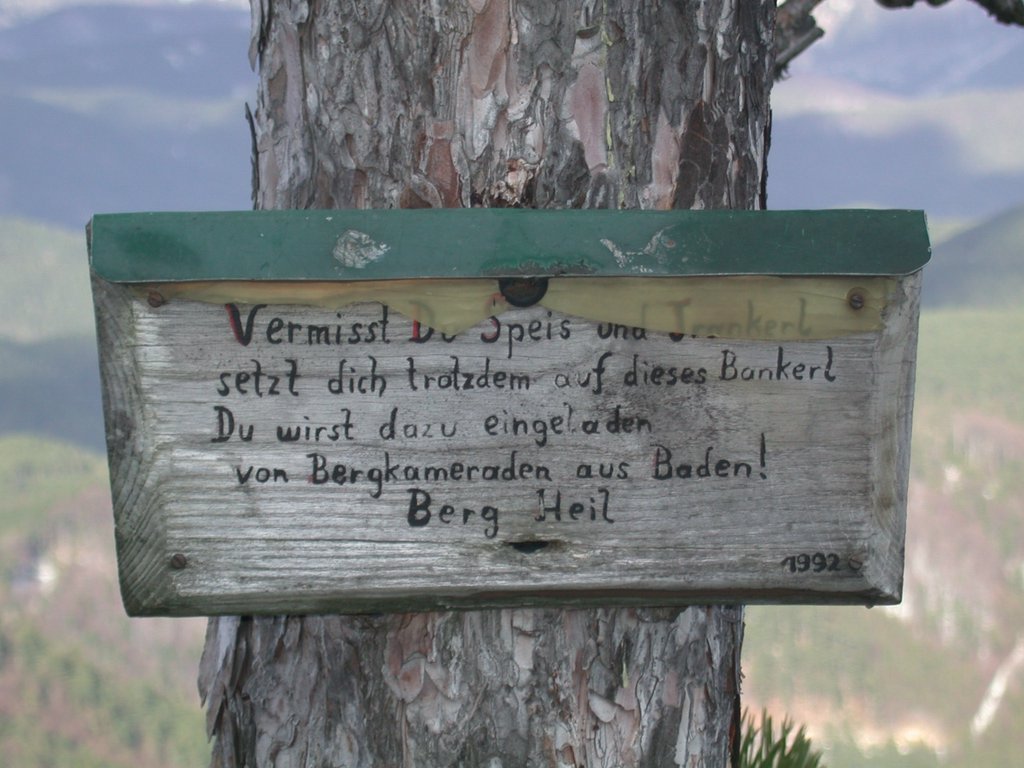 Vermisst Du Speis und Trankerl
setzt dich trotzdem auf dieses Bankerl
Du wirst dazu eingeladen
von Bergkameraden aus Baden!
Berg Heil
1992